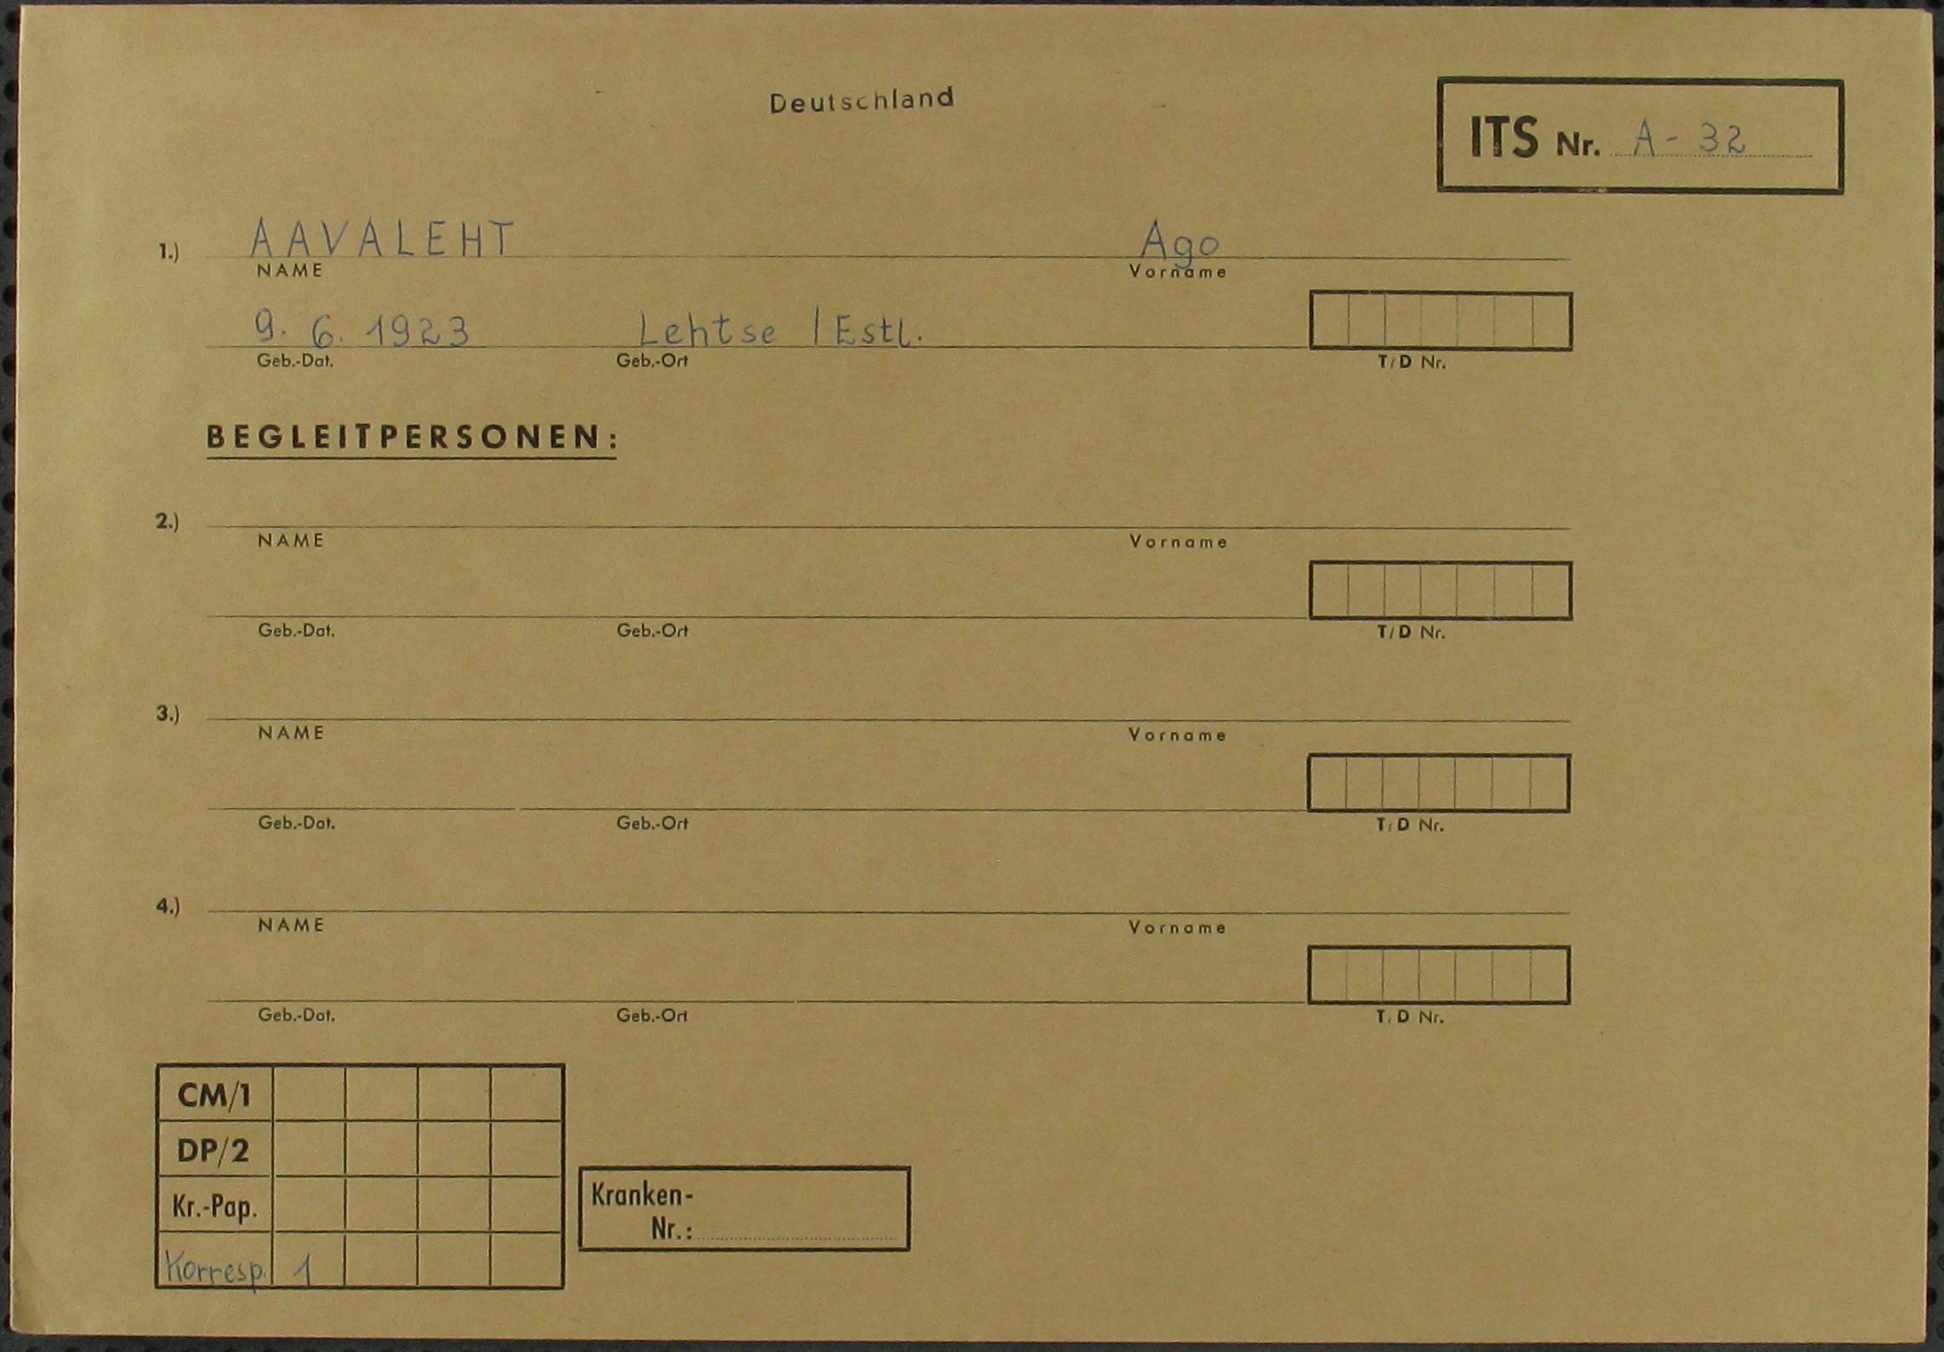 Deutschland
ITS Nr. A - 32
1.) AAVALEHT Ago
NAME Vorname
9. 6. 1923 Lehtse / Estl.
Geb.-Dat. Geb.-Ort T/D Nr.
BEGLEITPERSONEN:
2.)
NAME Vorname
Geb.-Dat. Geb.-Ort T/D Nr.
3.)
NAME Vorname
Geb.-Dat. Geb.-Ort T/D Nr.
4.)
NAME Vorname
Geb.-Dat. Geb.-Ort T/D Nr.
CM/1
DP/2
Kr.-Pap.
Korresp. 1
Kranken-
Nr.: